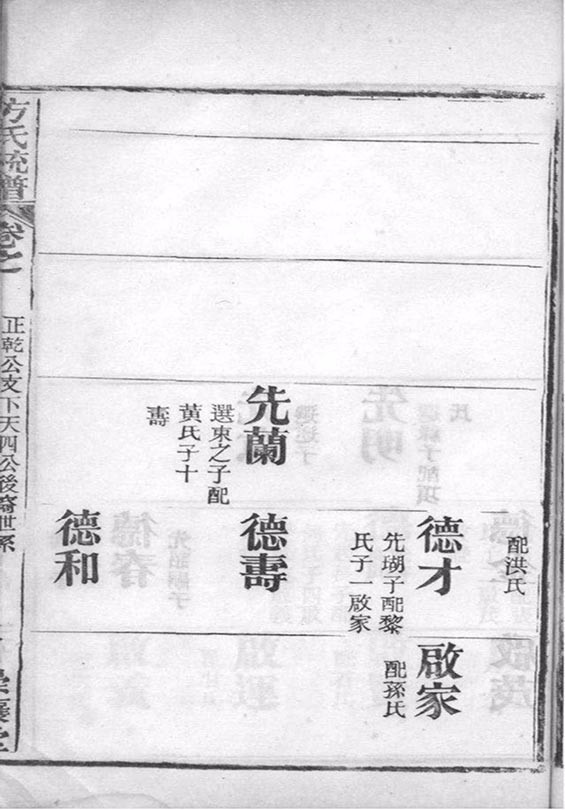 先蘭
選東之子配
黃氏子十
壽
配洪氏
德才
先瑚子配黎
氏子一啟家
德壽
德和
啟家
配孫氏
方氏
譜
卷之
正乾公支下天四公後裔世系